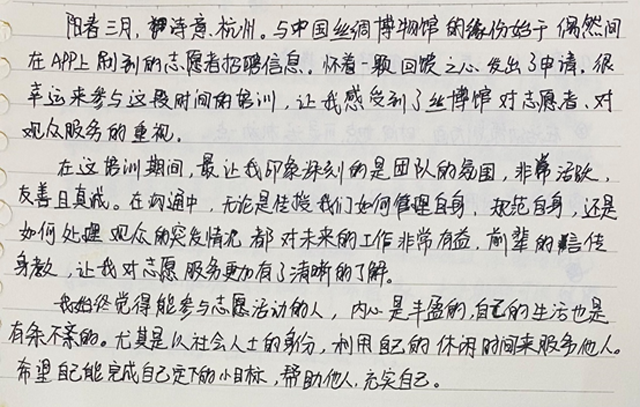 阳春三月，诗意杭州。与中国丝绸博物馆的缘份始于偶然间
在APP上刷到的志愿者招聘信息。怀着一颗回馈之心发出了申请。很
幸运来参与这段时间的培训，让我感受到了丝博馆对志愿者、对
观众服务的重视。
在这培训期间，最让我印象深刻的是团队的氛围，非常活跃，
友善且真诚。在沟通中，无论是传授我们如何管理自身、规范自身，还是
如何处理观众的突发情况都对未来的工作非常有益，前辈的言传
身教，让我对志愿服务更加有了清晰的了解。
我始终觉得能参与志愿活动的人，内心是丰盈的，自己的生活也是
有条不紊的。尤其是以社会人士的身份，利用自己的休闲时间来服务他人。
希望自己能完成自己定下的小目标，帮助他人，充实自己。